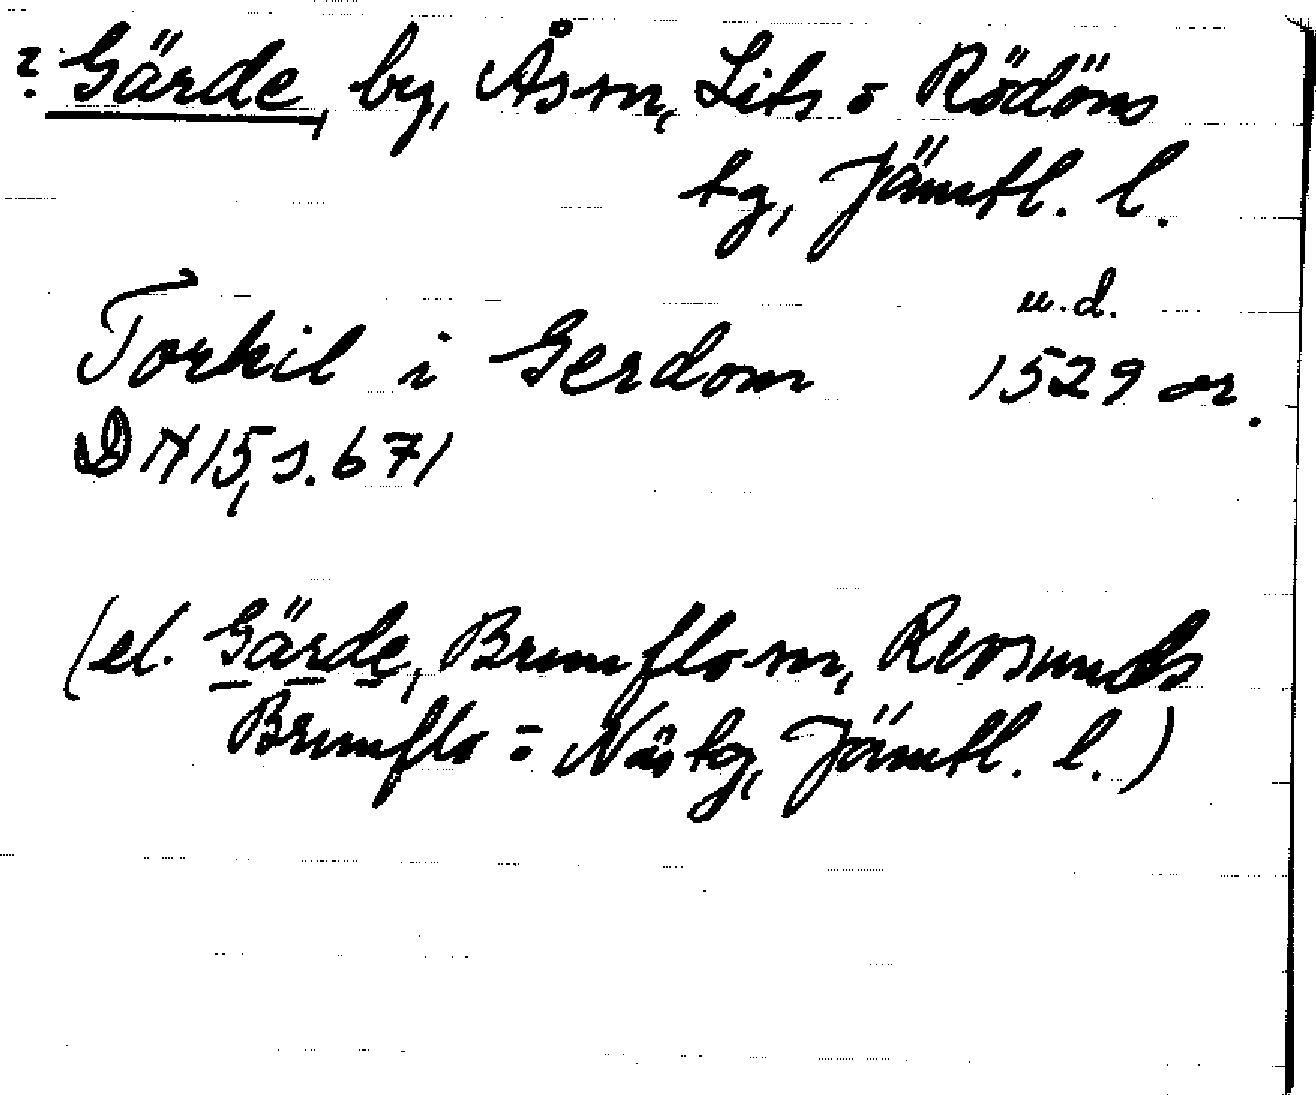 ? Gärde, by, Ås sn, Lits o Rödöns
tg, Jämtl. l.
u.d.
Torkil i Gerdom 1529 or.
DN 15, s. 671
(el. Gärde, Brunflo sn, Revsunds
Brunflo o Näs tg, Jämtl. l.)